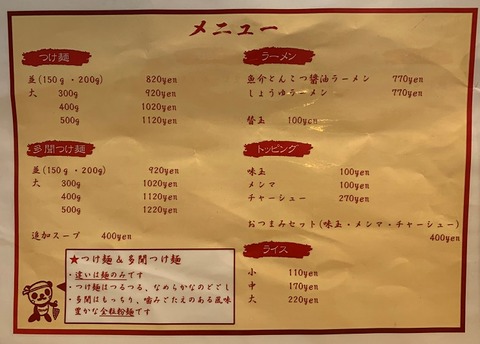 メニュー
つけ麺
並(150g・200g) 820yen
大 300g 920yen
400g 1020yen
500g 1120yen
多聞つけ麺
並(150g・200g) 920yen
大 300g 1020yen
400g 1120yen
500g 1220yen
追加スープ 400yen
★つけ麺&多聞つけ麺
・違いは麺のみです
・つけ麺はつるつる、なめらかなのどごし
・多聞はもっちり、噛みごたえのある風味
豊かな全粒粉麺です
ラーメン
魚介とんこつ醤油ラーメン 770yen
しょうゆラーメン 770yen
替玉 100yen
トッピング
味玉 100yen
メンマ 100yen
チャーシュー 270yen
おつまみセット(味玉・メンマ・チャーシュー)
400yen
ライス
小 110yen
中 170yen
大 220yen